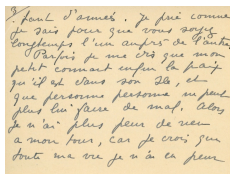 3/
tant d'années. Je prie comme
je sais pour que vous soyez
longtemps l'un auprès de l'autre.
Parfois je me dis que mon
petit connait enfin la paix
qu'il est dans son Ile, et
que personne personne ne peut
plus lui faire de mal. Alors
je n'ai plus peur de rien
à mon tour, car je crois que
toute ma vie je n'ai eu peur